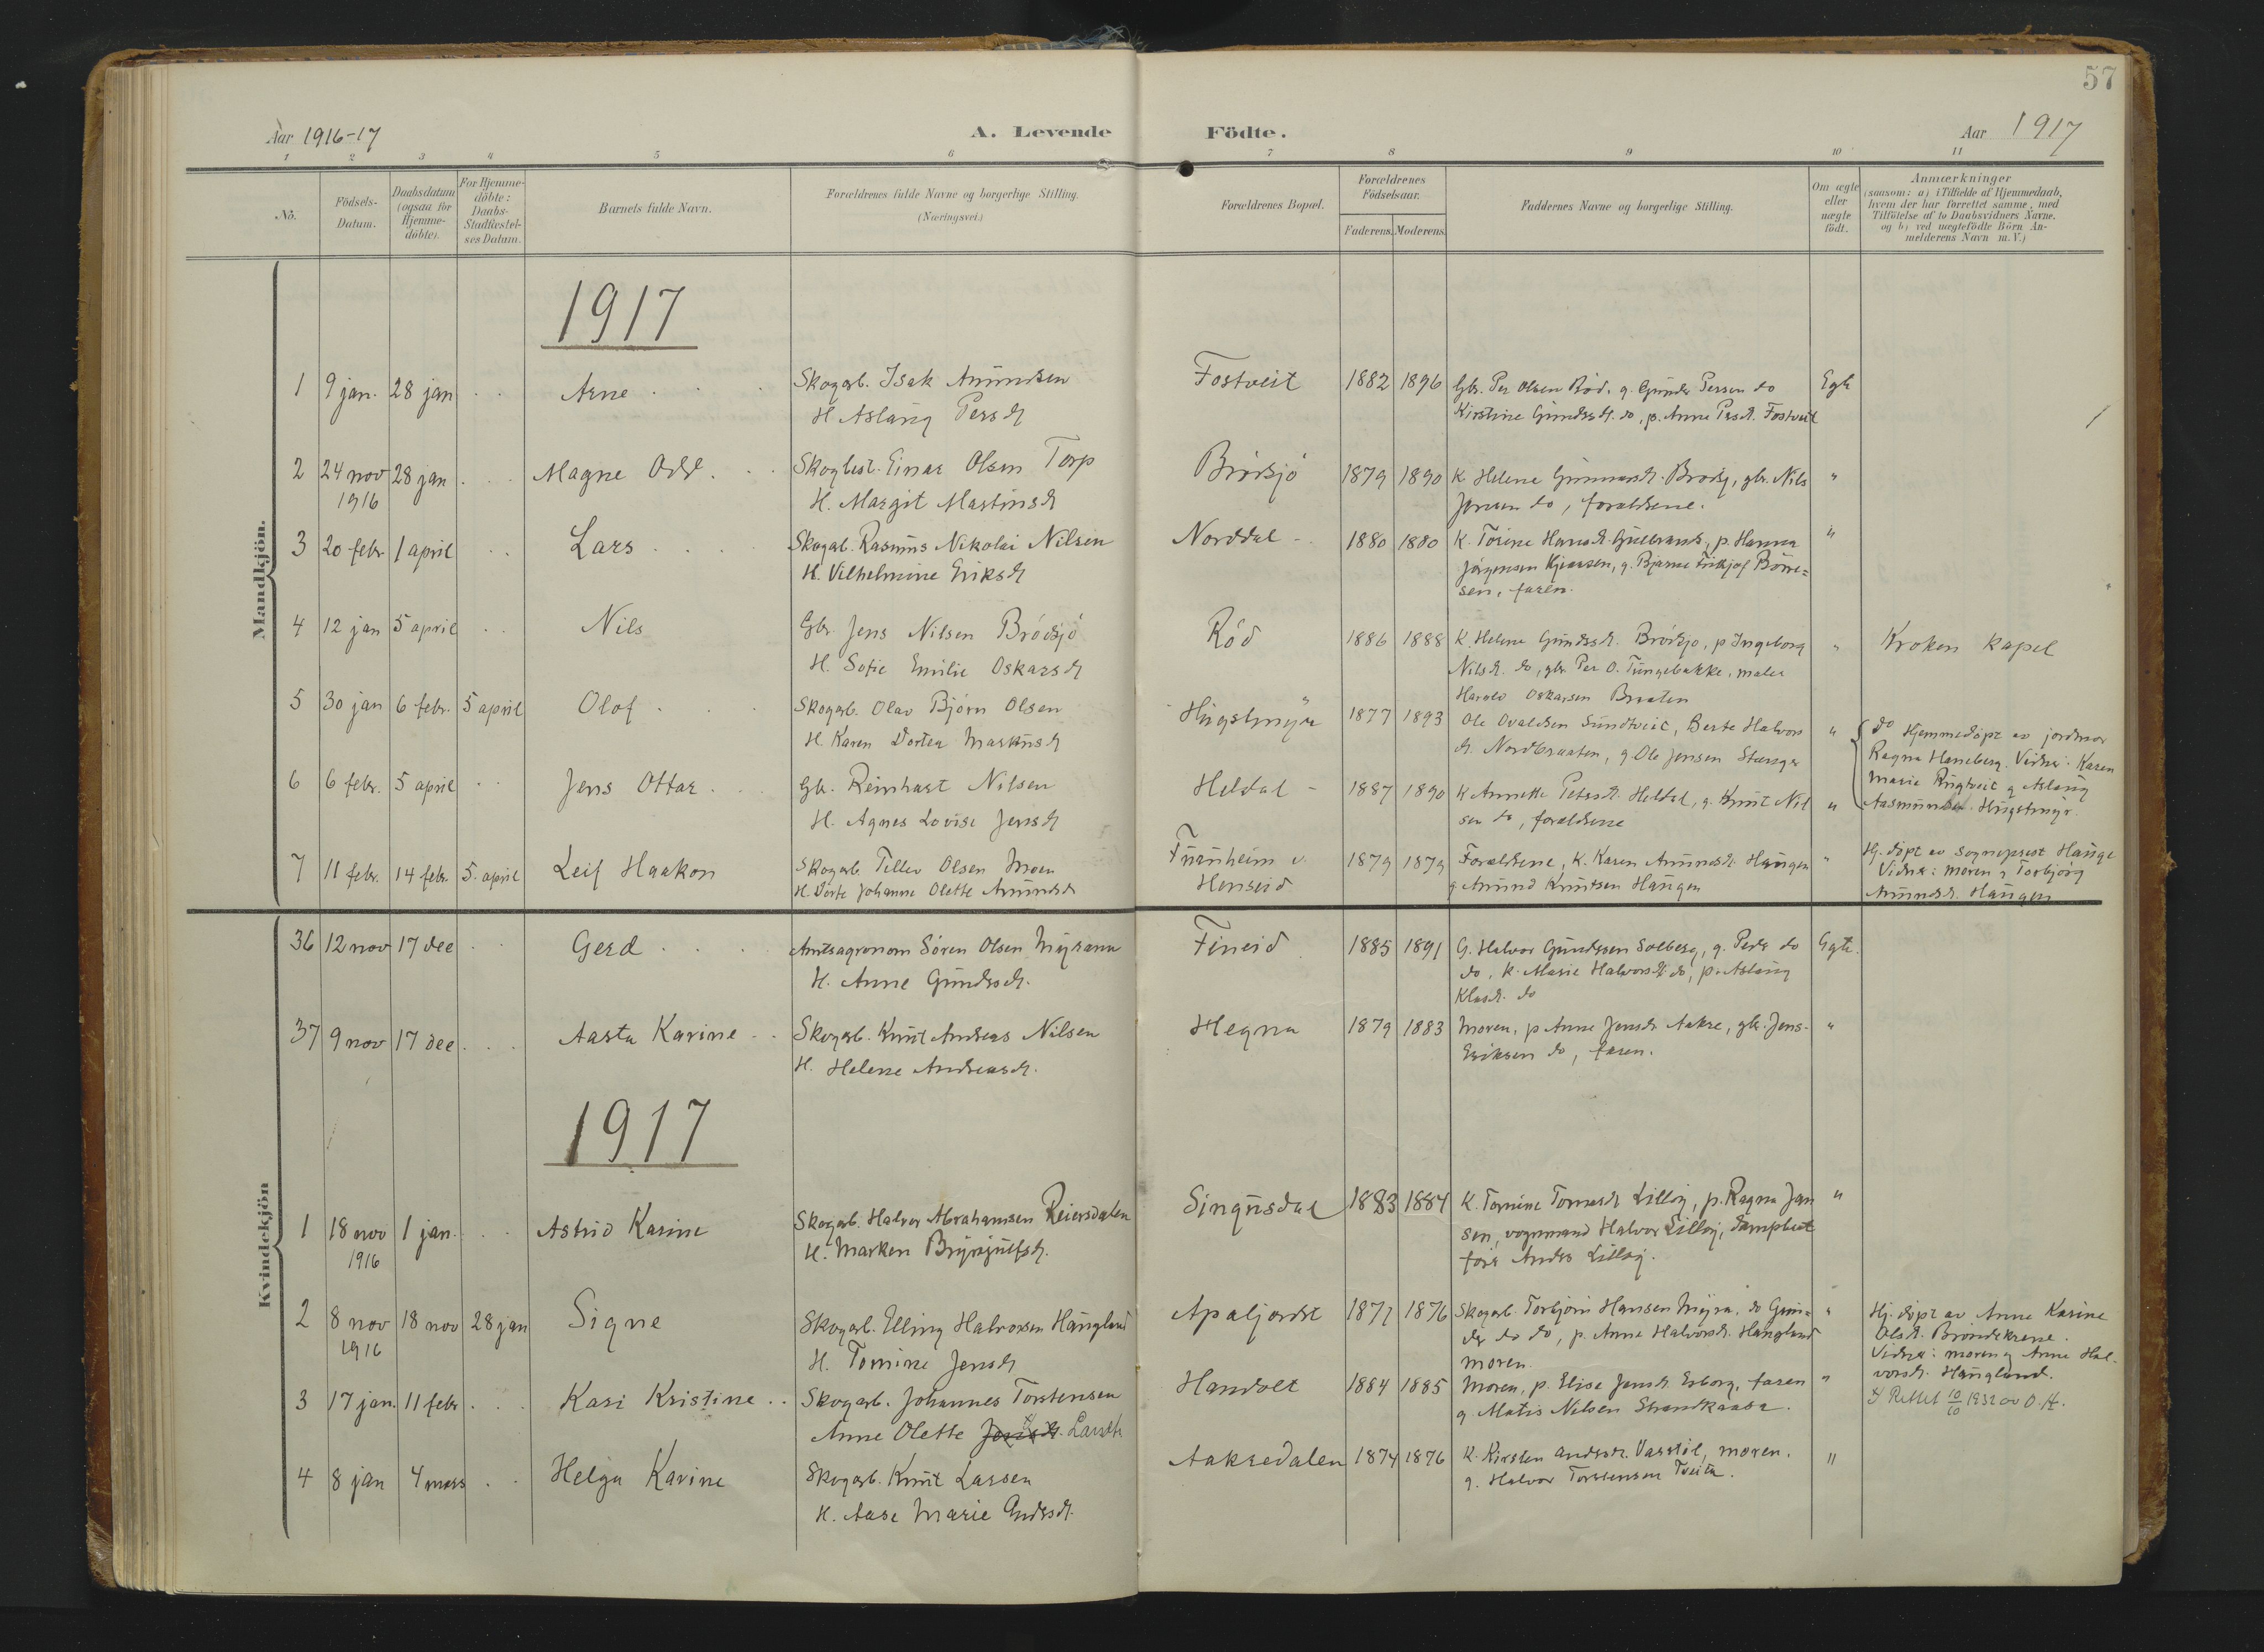 57
Aar 1916-17
A. Levende Födte.
Aar 1917
1 2 3 4 5 6 7 8 9 10 11
No.
Födsels-Datum.
Daabsdatum (ogsaa for Hjemme-döbte).
For Hjemme-döbte: Daabs-Stadfæstel-ses Datum.
Barnets fulde Navn.
Forældrenes fulde Navne og borgerlige Stilling.
(Næringsvei.)
Forældrenes Bopæl.
Forældrenes Födselsaar.
Faderens. Moderens.
Faddernes Navne og borgerlige Stilling.
Om ægte eller uægte födt.
Anmærkninger
(saasom: a) i Tilfælde af Hjemmedaab,
hvem der har forrettet samme, med
Tilföielse af to Daabsvidners Navne.
og b) ved uægtefödte Börn An-
melderens Navn m. V.)
Mandkjön.
1917
1 9 jan. 28 jan Arne Skogarb. Isak Amundsen Fostveit 1882 1896 Gbr. Per Olsen Röd, g. Gunder Persen do Egte
H. Aslaug Persd. Kirstine Gundersd. do, p. Anne Persd. Fostveit
2 24 nov 28 jan Magne Odd Skogbest. Einar Olsen Torp Brödsjö 1879 1890 K. Helene Gunnarsd. Brödsj, gbr. Nils "
1916 H. Margit Martinsd. Jensen do, forældrene.
3 20 febr. 1 april Lars Skogarb. Rasmus Nikolai Nilsen Norddal 1880 1880 K. Torine Hansd. Gulbrands, p. Hanna "
H. Vilhelmine Eriksd. Jörgensen Kjærsen, g. Bjarne Fritjof Börre=
sen, faren.
4 12 jan 5 april Nils Gbr. Jens Nilsen Brödsjö Röd 1886 1888 K. Helene Gundersd. Brödsjö, p Ingeborg " Kroken kapel
H. Sofie Emilie Oskarsd. Nilsd. do, gbr. Per O. Tungebakke, maler
Harald Oskarsen Braaten
5 30 jan 6 febr. 5 april Olof Skogarb. Olav Björn Olsen Hugstmyr 1877 1893 Ole Ovaldsen Sundtveit, Berte Halvors "
H. Karen Dortea Markusd. d. Nordbraaten, g Ole Jensen Stanger
do Hjemmedöpt av jordmor
Ragna Haneberg. Vidner: Karen
Marie Rugtveit og Aslaug
Aasmundsd. Hugstmyr.
6 6 febr. 5 april Jens Ottar Gbr. Reinhart Nilsen Heldal 1887 1890 K Annette Petersd. Heldal, g. Knut Nil "
H. Agnes Lovise Jensd. sen do, forældrene
7 11 febr. 14 febr. 5. april Leif Haakon Skogarb. Tellev Olsen Moen Furuheim v. 1879 1879 Forældrene, K. Karen Amundsd. Haugen " Hj. döpt av sogneprest Hauge
H. Dorte Johanne Olette Amundsd. Henseid g Amund Knutsen Haugen Vidner: moren og Torbjörg
Amundsd. Haugen
Kvindekjön
36 12 nov 17 dec Gerd Amtsagronom Sören Olsen Myrann Fineid 1885 1891 G. Halvor Gundersen Solberg, g. Peder do Egte.
H. Anne Gundersd. do, K. Marie Halvorsd. do, p. Aslaug
Klasd. do
37 9 nov 17 dec. Aasta Karine Skogarb. Knut Andreas Nilsen Hegna 1879 1883 Moren, p Anne Jensd. Aakre, gbr. Jens "
H. Helene Andreasd. Eriksen do, faren.
1917
1 18 nov 1 jan. Astrid Karine Skogarb. Halvor Abrahamsen Reiersdalen Singusdal 1883 1884 K. Tomine Tomasd. Lillöy, p. Ragna Jan "
1916 H. Marken Brynjulfsd. sen, vognmand Halvor Lillöy, dampbaat
förer Anders Lillöy.
2 8 nov 18 nov 28 jan Signe Skogarb. Elling Halvorsen Haugland Apaljordet 1877 1876 Skogarb. Torbjörn Hansen Myra, do Gun= "
1916 H. Tomine Jensd. der do do, p. Anne Halvorsd. Haugland
moren
Hj. döpt av Anne Karine
Olsd. Bröndekærne.
Vidner: moren og Anne Hal-
vorsd. Haugland.
3 17 jan. 11 febr Kari Kristine Skogarb. Johannes Torstensen Handalt 1884 1885 Moren, p. Elise Jensd. Esborg, faren " x) Rettet 10/10 1932 av O. H.
Anne Olette Jensd. x) Larsdtr. g. Matis Nilsen Strandkaasa.
4 8 jan 4 mars Helga Karine Skogarb. Knut Larsen Aakredalen 1874 1876 K. Kirsten Andersd. Vasstöl, moren. "
H. Aase Marie Andersd. g. Halvor Torstensen Tveita.